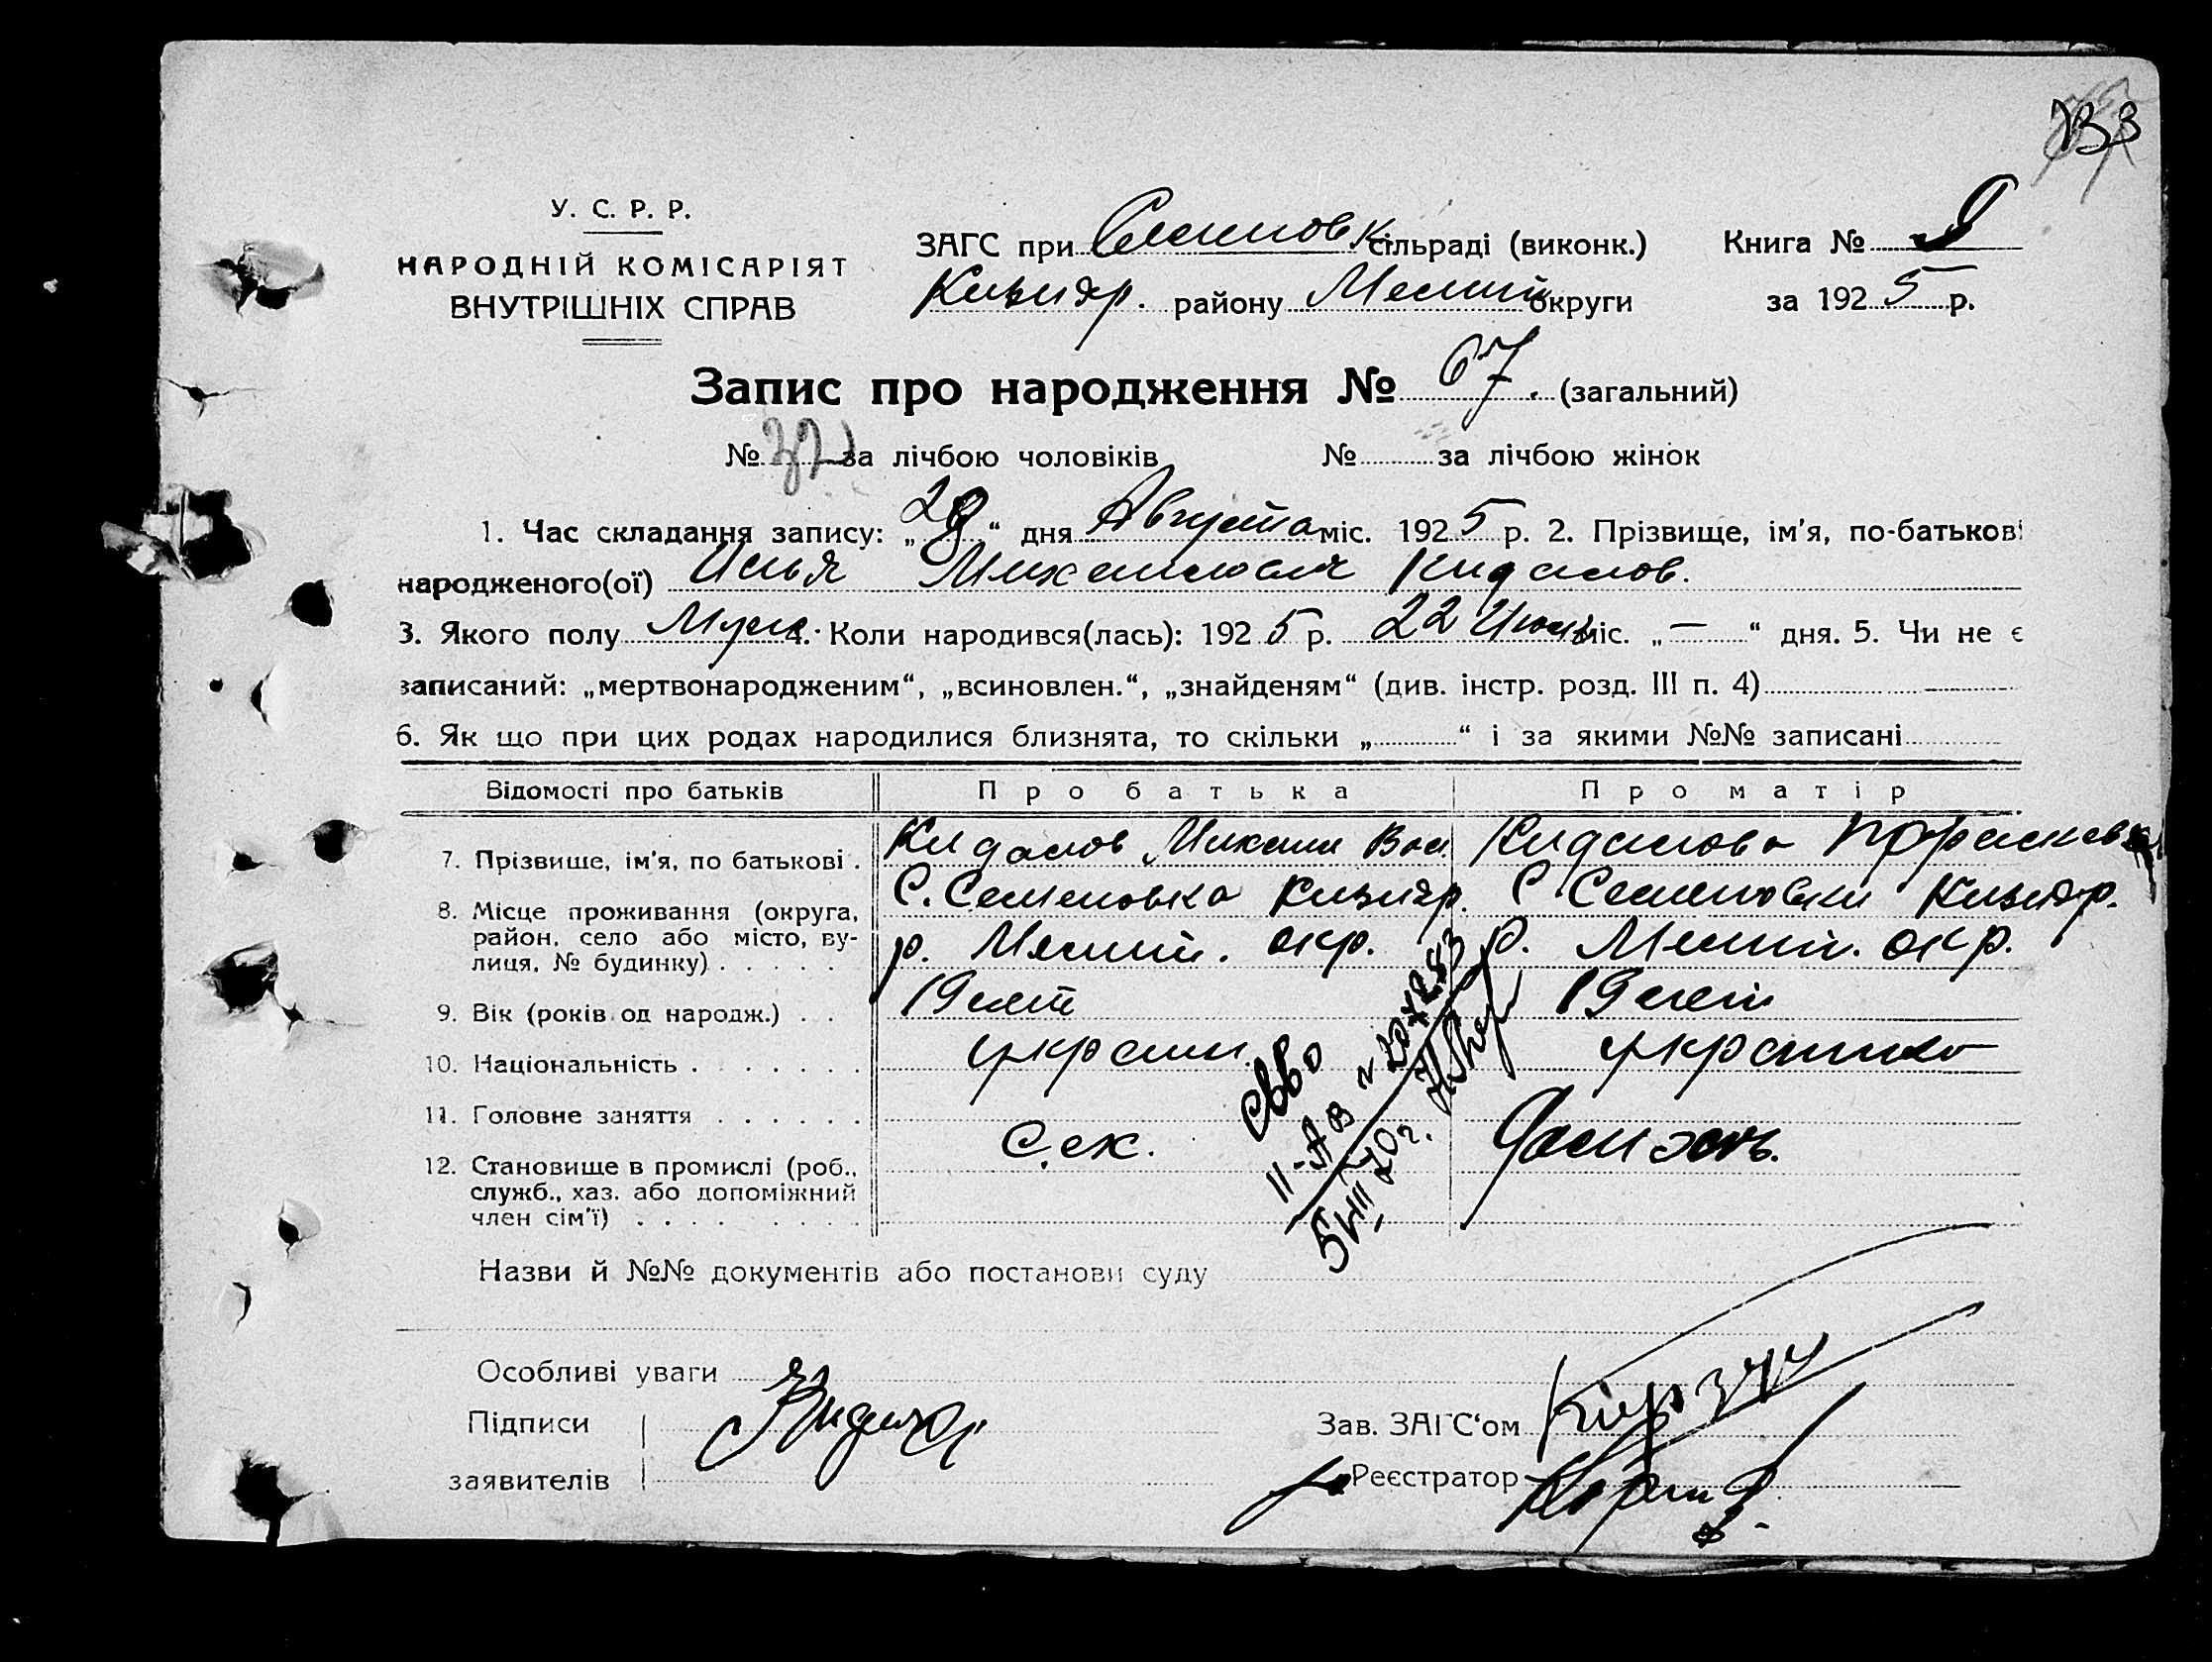 733
У. С. Р. Р.
НАРОДНІЙ КОМІСАРІЯТ
ВНУТРІШНІХ СПРАВ
ЗАГС при Семеновк. сільраді (виконк.) Книга №
Кизияр. району Мелит округи за 1925 р.
Запис про народження № 67. (загальний)
№ 37 за лічбою чоловіків № за лічбою жінок
1. Час складання запису: „28“ дня Августа міс. 1925 р. 2. Прізвище, ім'я, по-батькові
народженого(ої) Илья Михайлович Кидалов.
3. Якого полу Муж. 4. Коли народився(лась): 1925 р. 22 Июль міс. „—“ дня. 5. Чи не є
записаний: „мертвонародженим“, „всиновлен.“, „знайденям“ (див. інстр. розд. III п. 4)
6. Як що при цих родах народилися близнята, то скільки „ “ і за якими №№ записані
Відомості про батьків Про батька Про матір
7. Прізвище, ім'я, по батькові . Кидалов Михаил Вас. Кидалова Парасковья
8. Місце проживання (округа, район, село або місто, вулиця, № будинку) С. Семеновка Кизияр. С. Семеновки Кизияр.
р. Мелит. окр. р. Мелит. окр.
9. Вік (років од народж.) 19 лет 19 лет
10. Національність украин. украинка
11. Головне заняття
12. Становище в промислі (роб., служб., хаз. або допоміжний член сім'ї) С.хк. Домхоз.
Назви й №№ документів або постанови суду
Особливі уваги
Підписи
заявителів
Зав. ЗАГС'ом
Реєстратор